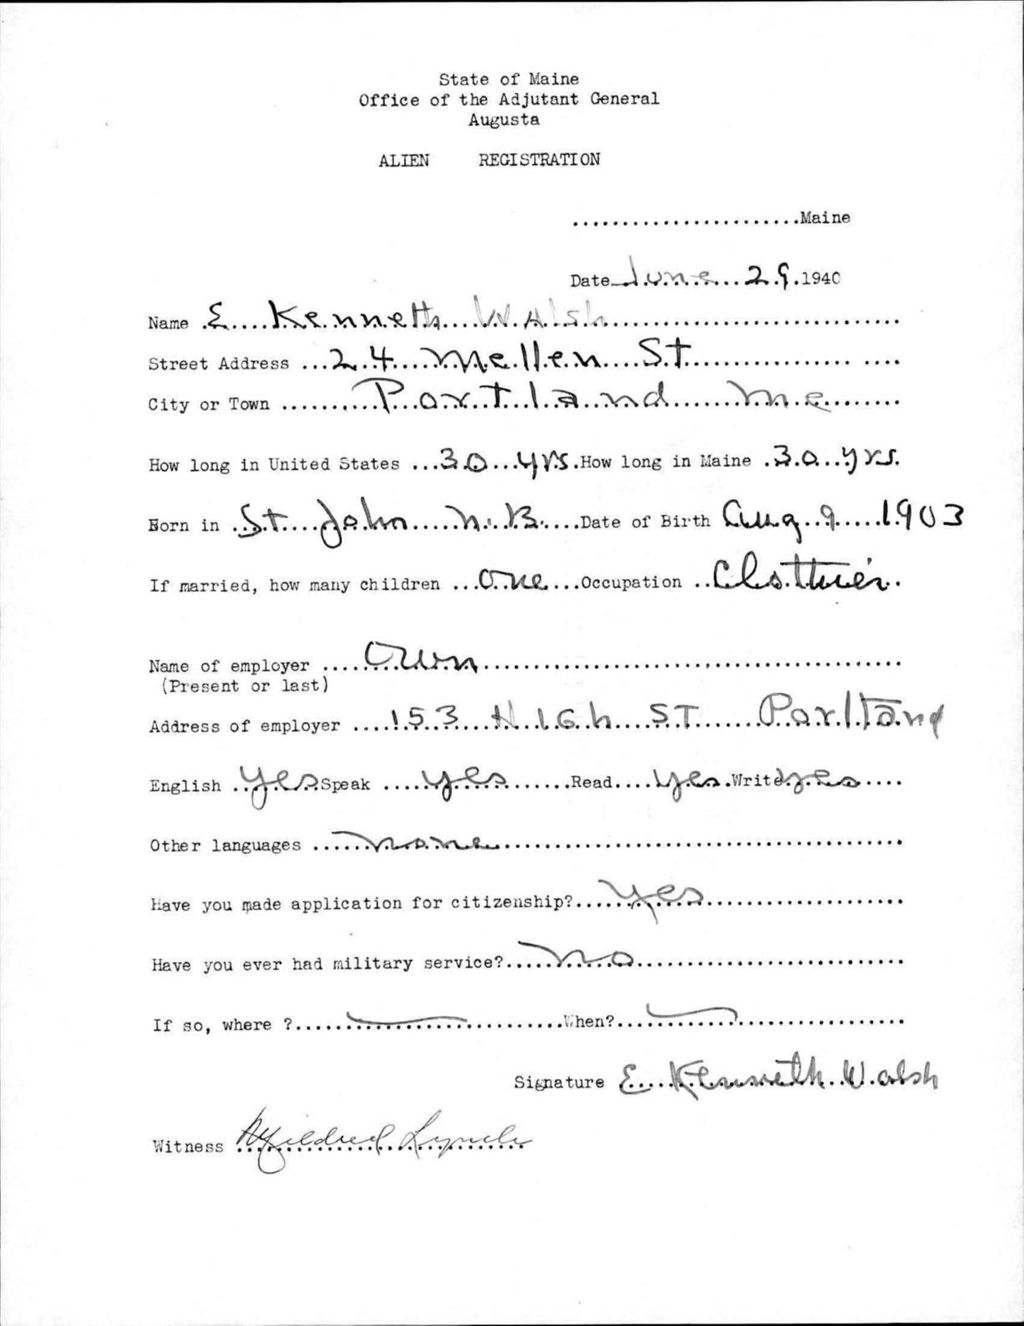 State of Maine
Office of the Adjutant General
Augusta
ALIEN REGISTRATION
.......................Maine
Date June 29 1940
Name E. Kenneth Walsh
Street Address 24 Mellen St
City or Town Portland Me
How long in United States 30 yrs. How long in Maine 30 yrs.
Born in St. John N.B. Date of Birth Aug 9 1903
If married, how many children One Occupation Clothier
Name of employer Own
(Present or last)
Address of employer 153 High ST Portland
English Yes Speak yes Read yes Write yes
Other languages none
Have you made application for citizenship? Yes
Have you ever had military service? No
If so, where ? When?
Signature E. Kenneth Walsh
Witness Mildred Lynch